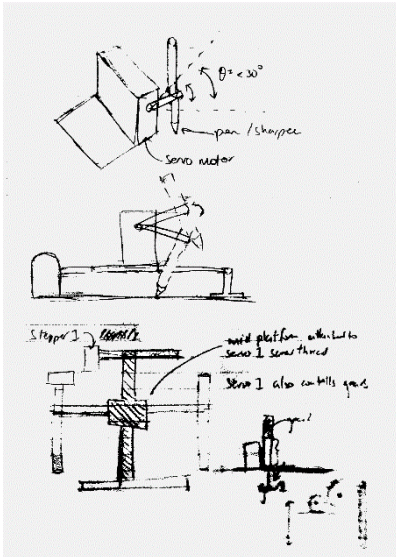 θ = < 30°
pen / sharpee
servo motor
Stepper 1
mid platform attached to
servo 1 screw thread
Servo 1 also controlls gears
gear